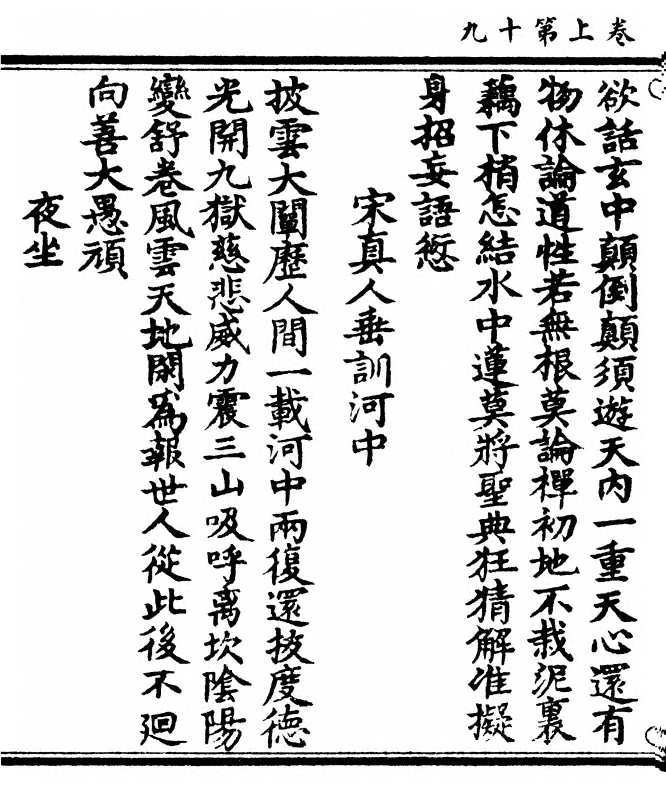 卷上第十九
欲話玄中顛倒顛須遊天內一重天心還有
物休論道性若無根莫論禪初地不栽泥裏
藕下梢怎結水中蓮莫將聖典狂猜解准擬
身招妄語愆
宋真人垂訓河中
披雲大闡歷人間一載河中兩復還拔度德
光開九獄慈悲威力震三山吸呼离坎陰陽
變舒卷風雲天地閑爲報世人從此後不廻
向善大愚頑
夜坐